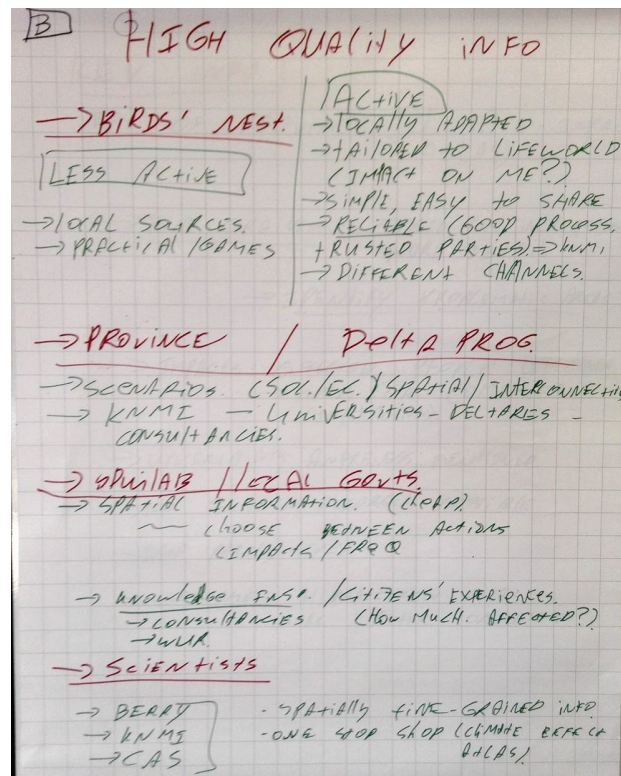 B
HIGH QUALITY INFO
→ BIRDS' NEST.
LESS ACTIVE
→ LOCAL SOURCES.
→ PRACTICAL / GAMES
ACTIVE
→ LOCALLY ADAPTED
→ TAILORED TO LIFEWORLD
(IMPACT ON ME?)
→ SIMPLE, EASY TO SHARE
→ RELIABLE (GOOD PROCESS,
TRUSTED PARTIES) ⇒ KNMI
→ DIFFERENT CHANNELS.
→ PROVINCE / DELTA PROG.
→ SCENARIOS. (SOC./EC.) SPATIAL / INTERCONNECTIVITY
→ KNMI — UNIVERSITIES – DELTARES –
CONSULTANCIES.
→ / LOCAL GOVTS.
→ SPATIAL INFORMATION. (CHEAP)
CHOOSE BETWEEN ACTIONS
(IMPACTS / FREQ
→ KNOWLEDGE INST. / CITIZENS' EXPERIENCES.
→ CONSULTANCIES (HOW MUCH AFFECTED?)
→ WUR.
→ SCIENTISTS
→ BERRY - SPATIALLY FINE-GRAINED INFO
→ KNMI - ONE STOP SHOP (CLIMATE EFFECT
→ CAS ATLAS)